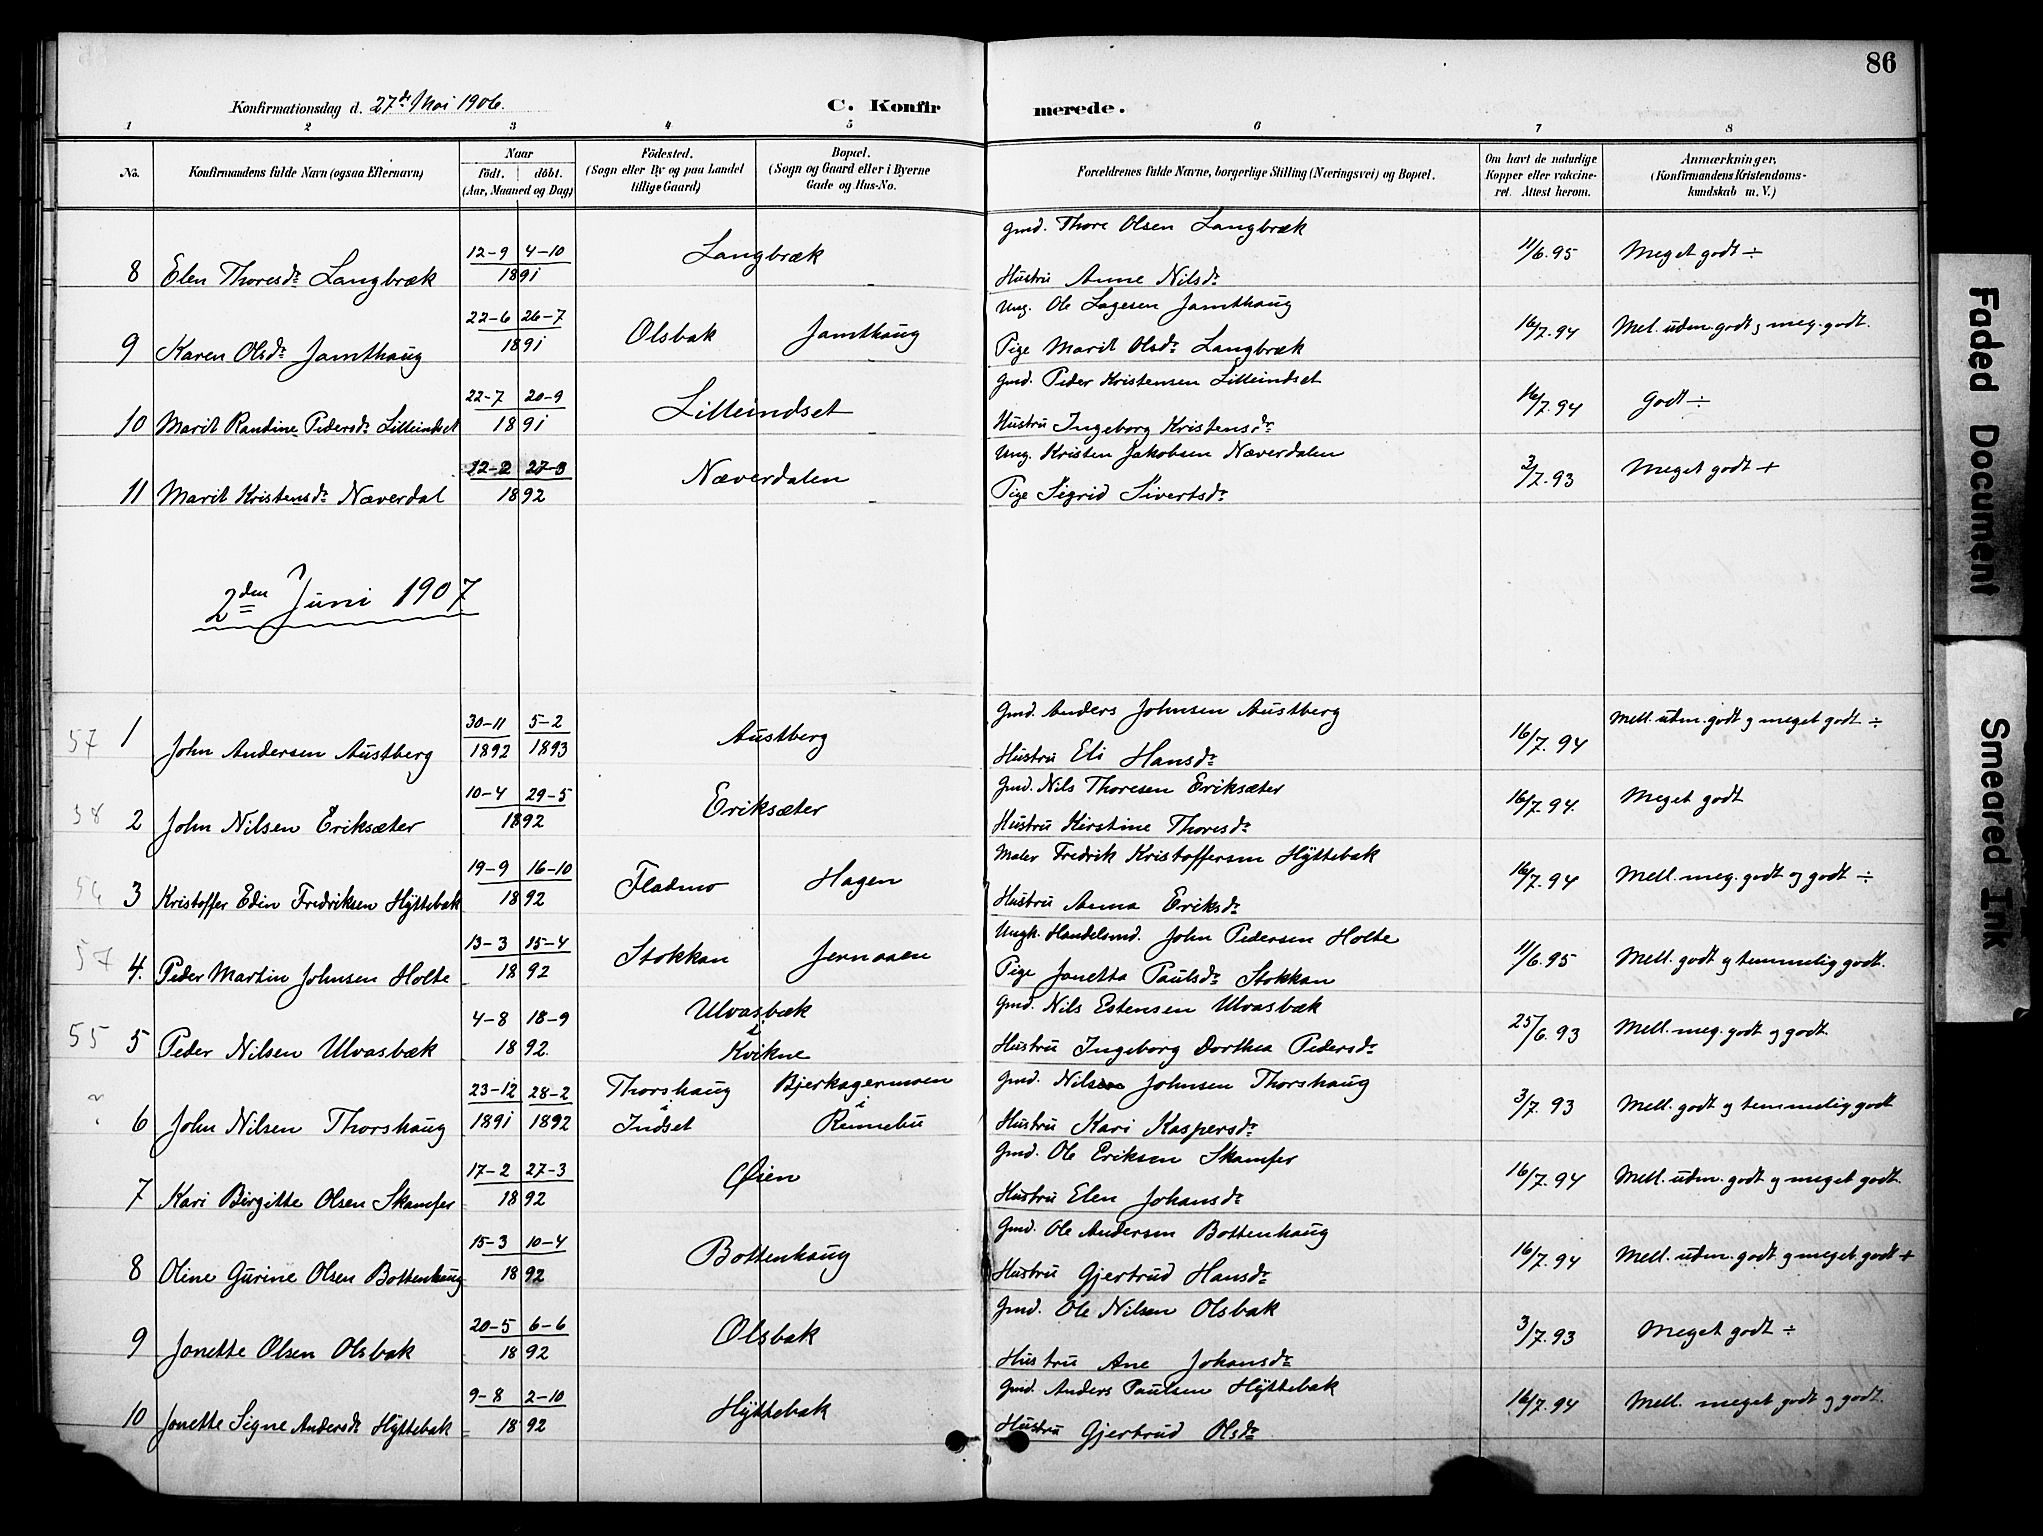 86
Konfirmationsdag d. 27de Mai 1906.
C. Konfirmerede.
1 2 3 4 5 6 7 8
No.
Konfirmandens fulde Navn (ogsaa Efternavn)
Naar
födt. döbt.
(Aar, Maaned og Dag)
Födested.
(Sogn eller By og paa Landet
tillige Gaard)
Bopæl.
(Sogn og Gaard eller i Byerne
Gade og Hus-No.
Forældrenes fulde Navne, borgerlige Stilling (Næringsvei) og Bopæl.
Om havt de naturlige
Kopper eller vakcine-
ret. Attest herom.
Anmærkninger,
(Konfirmandens Kristendoms-
kundskab m. V.)
8 Elen Thoresdr Langbræk 12-9 4-10 1891 Langbræk Gmd. Thore Olsen Langbræk 11/6.95 Meget godt ÷
Hustru Anne Nilsdr
9 Karen Olsdr Jamthaug 22-6 26-7 1891 Olsbak Jamthaug Ung. Ole Lagesen Jamthaug 16/7.94 Mel. udm. godt og meg. godt.
Pige Marit Olsdr Langbræk
10 Marit Randine Pedersdr Lilleindset 22-7 20-9 1891 Lilleindset Gmd. Peder Kristensen Lilleindset 16/7.94 Godt ÷
Hustru Ingeborg Kristensdr
11 Marit Kristensdr Næverdal 12-2 27-3 1892 Næverdalen Ung. Kristen Jakobsen Næverdalen 3/7.93 Meget godt +
Pige Sigrid Sivertsdr
2den Juni 1907
57 1 John Andersen Austberg 30-11 1892 5-2 1893 Austberg Gmd. Anders Johnsen Austberg 16/7.94 Mell. udm. godt og meget godt ÷
Hustru Eli Hansdr
58 2 John Nilsen Eriksæter 10-4 29-5 1892 Eriksæter Gmd. Nils Thoresen Eriksæter 16/7.94. Meget godt
Hustru Kirstine Thoresdr
3 Kristoffer Edin Fredriksen Hyttebak 19-9 16-10 1892 Fladmo Hagen Maler Fredrik Kristoffersen Hyttebak 16/7.94 Mell. meg. godt og godt ÷
Hustru Anna Eriksdr
57 4. Peder Martin Johnsen Holte 13-3 15-4 1892 Stokkan Jernaaen Ungk. Handelsmd. John Pedersen Holte 11/6.95 Mell. godt og temmelig godt.
Pige Jonetta Paulsdr Stokkan
55 5 Peder Nilsen Ulvasbæk 4-8 18-9 1892. Ulvasbæk i Kvikne Gmd. Nils Estensen Ulvasbæk 25/6.93 Mell. meg. godt og godt.
Hustru Ingeborg Dorthea Pedersdr
6 John Nilsen Thorshaug 23-12 1891 28-2 1892 Thorshaug i Indset Bjerkagermoen i Rennebu Gmd. Nils Johnsen Thorshaug 3/7.93 Mell. godt og temmelig godt
Hustru Kari Kaspersdr
7 Kari Birgitte Olsen Skamfer 17-2 27-3 1892 Øien Gmd. Ole Eriksen Skamfer 16/7.94 Mell. udm. godt og meget godt.
Hustru Elen Johansdr
8 Oline Gurine Olsen Bottenhaug 15-3 10-4 1892 Bottenhaug Gmd. Ole Andersen Bottenhaug 16/7.94 Mell. udm. godt og meget godt +
Hustru Gjertrud Hansdr
9 Jonette Olsen Olsbak 20-5 6-6 1892 Olsbak Gmd. Ole Nilsen Olsbak 3/7.93 Meget godt ÷
Hustru Ane Johansdr
10 Jonette Signe Andersdr Hyttebak 9-8 2-10 1892 Hyttebak Gmd. Anders Paulsen Hyttebak 16/7.94 Mell. meget godt og godt.
Hustru Gjertrud Olsdr
Faded Document
Smeared Ink